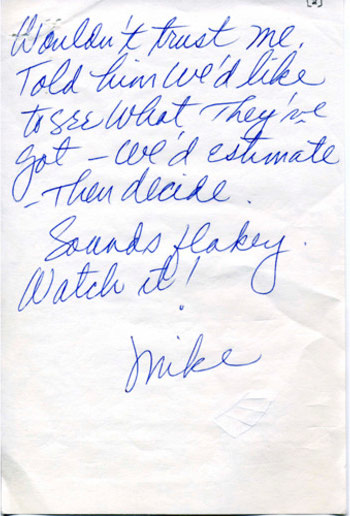 [2]
Wouldn't trust me.
Told him we'd like
to see what they've
got – we'd estimate
– then decide.
Sounds flakey.
Watch it!
Mike